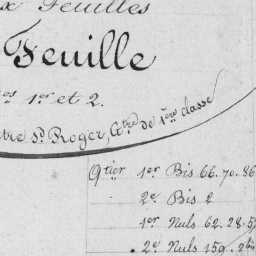 x Feuilles
Feuille
os 1er et 2.
tre St Roger, Gtre de 1ère classe
Qtier 1er Bis 66. 70. 86
2e Bis 2
1er Nuls 62. 28. 5
2e Nuls 159. 2bis